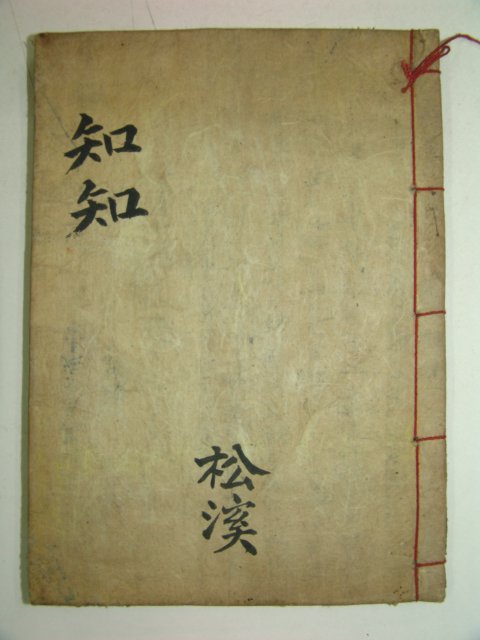 知知
松溪